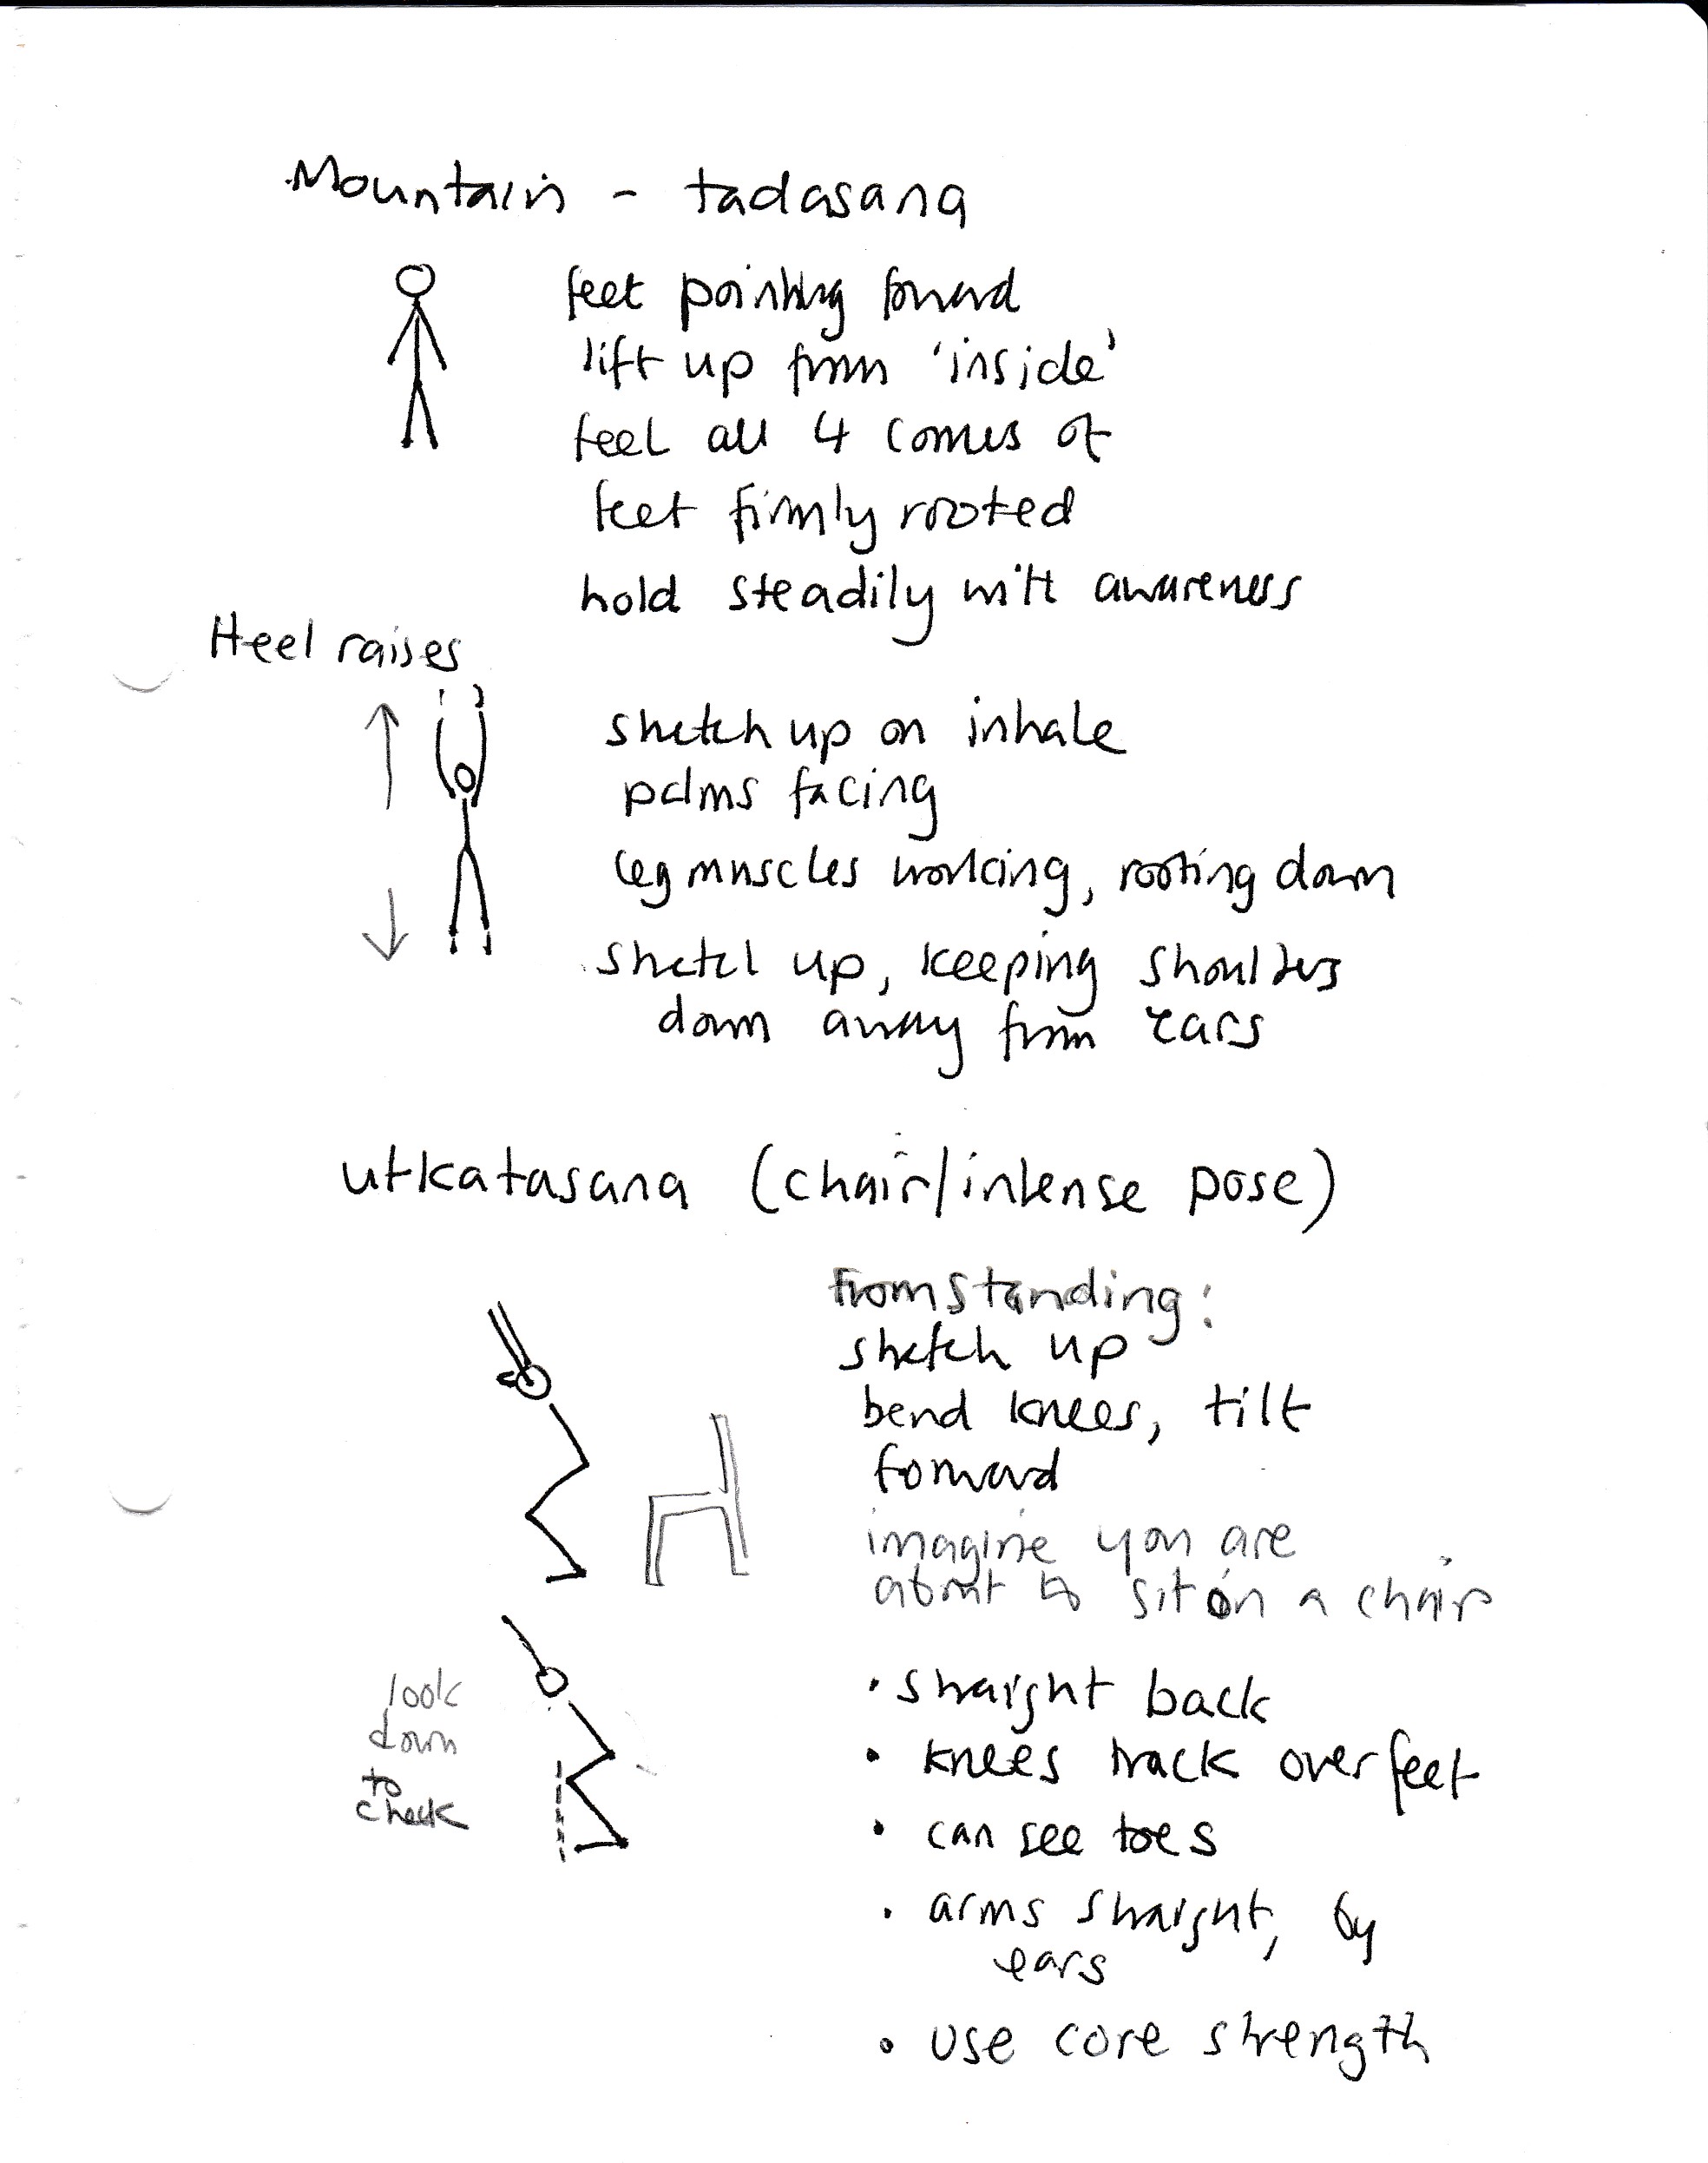 Mountain - tadasana
feet pointing forward
lift up from 'inside'
feel all 4 corners of
feet firmly rooted
hold steadily with awareness
Heel raises
stretch up on inhale
palms facing
leg muscles working, rooting down
stretch up, keeping shoulders
down away from ears
utkatasana (chair/intense pose)
From standing:
stretch up
bend knees, tilt
forward
imagine you are
about to sit on a chair
look
down
to
check
• straight back
• knees track over feet
• can see toes
• arms straight, by
ears
• use core strength